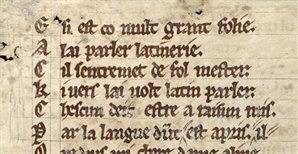 E si est co mult grant folie.
A lai parler latinerie.
C il sentremet de fol mester:
K i vers lai volt latin parler:
C hescun deit estre a raisun mis.
P ar la langue dūt est apris. il